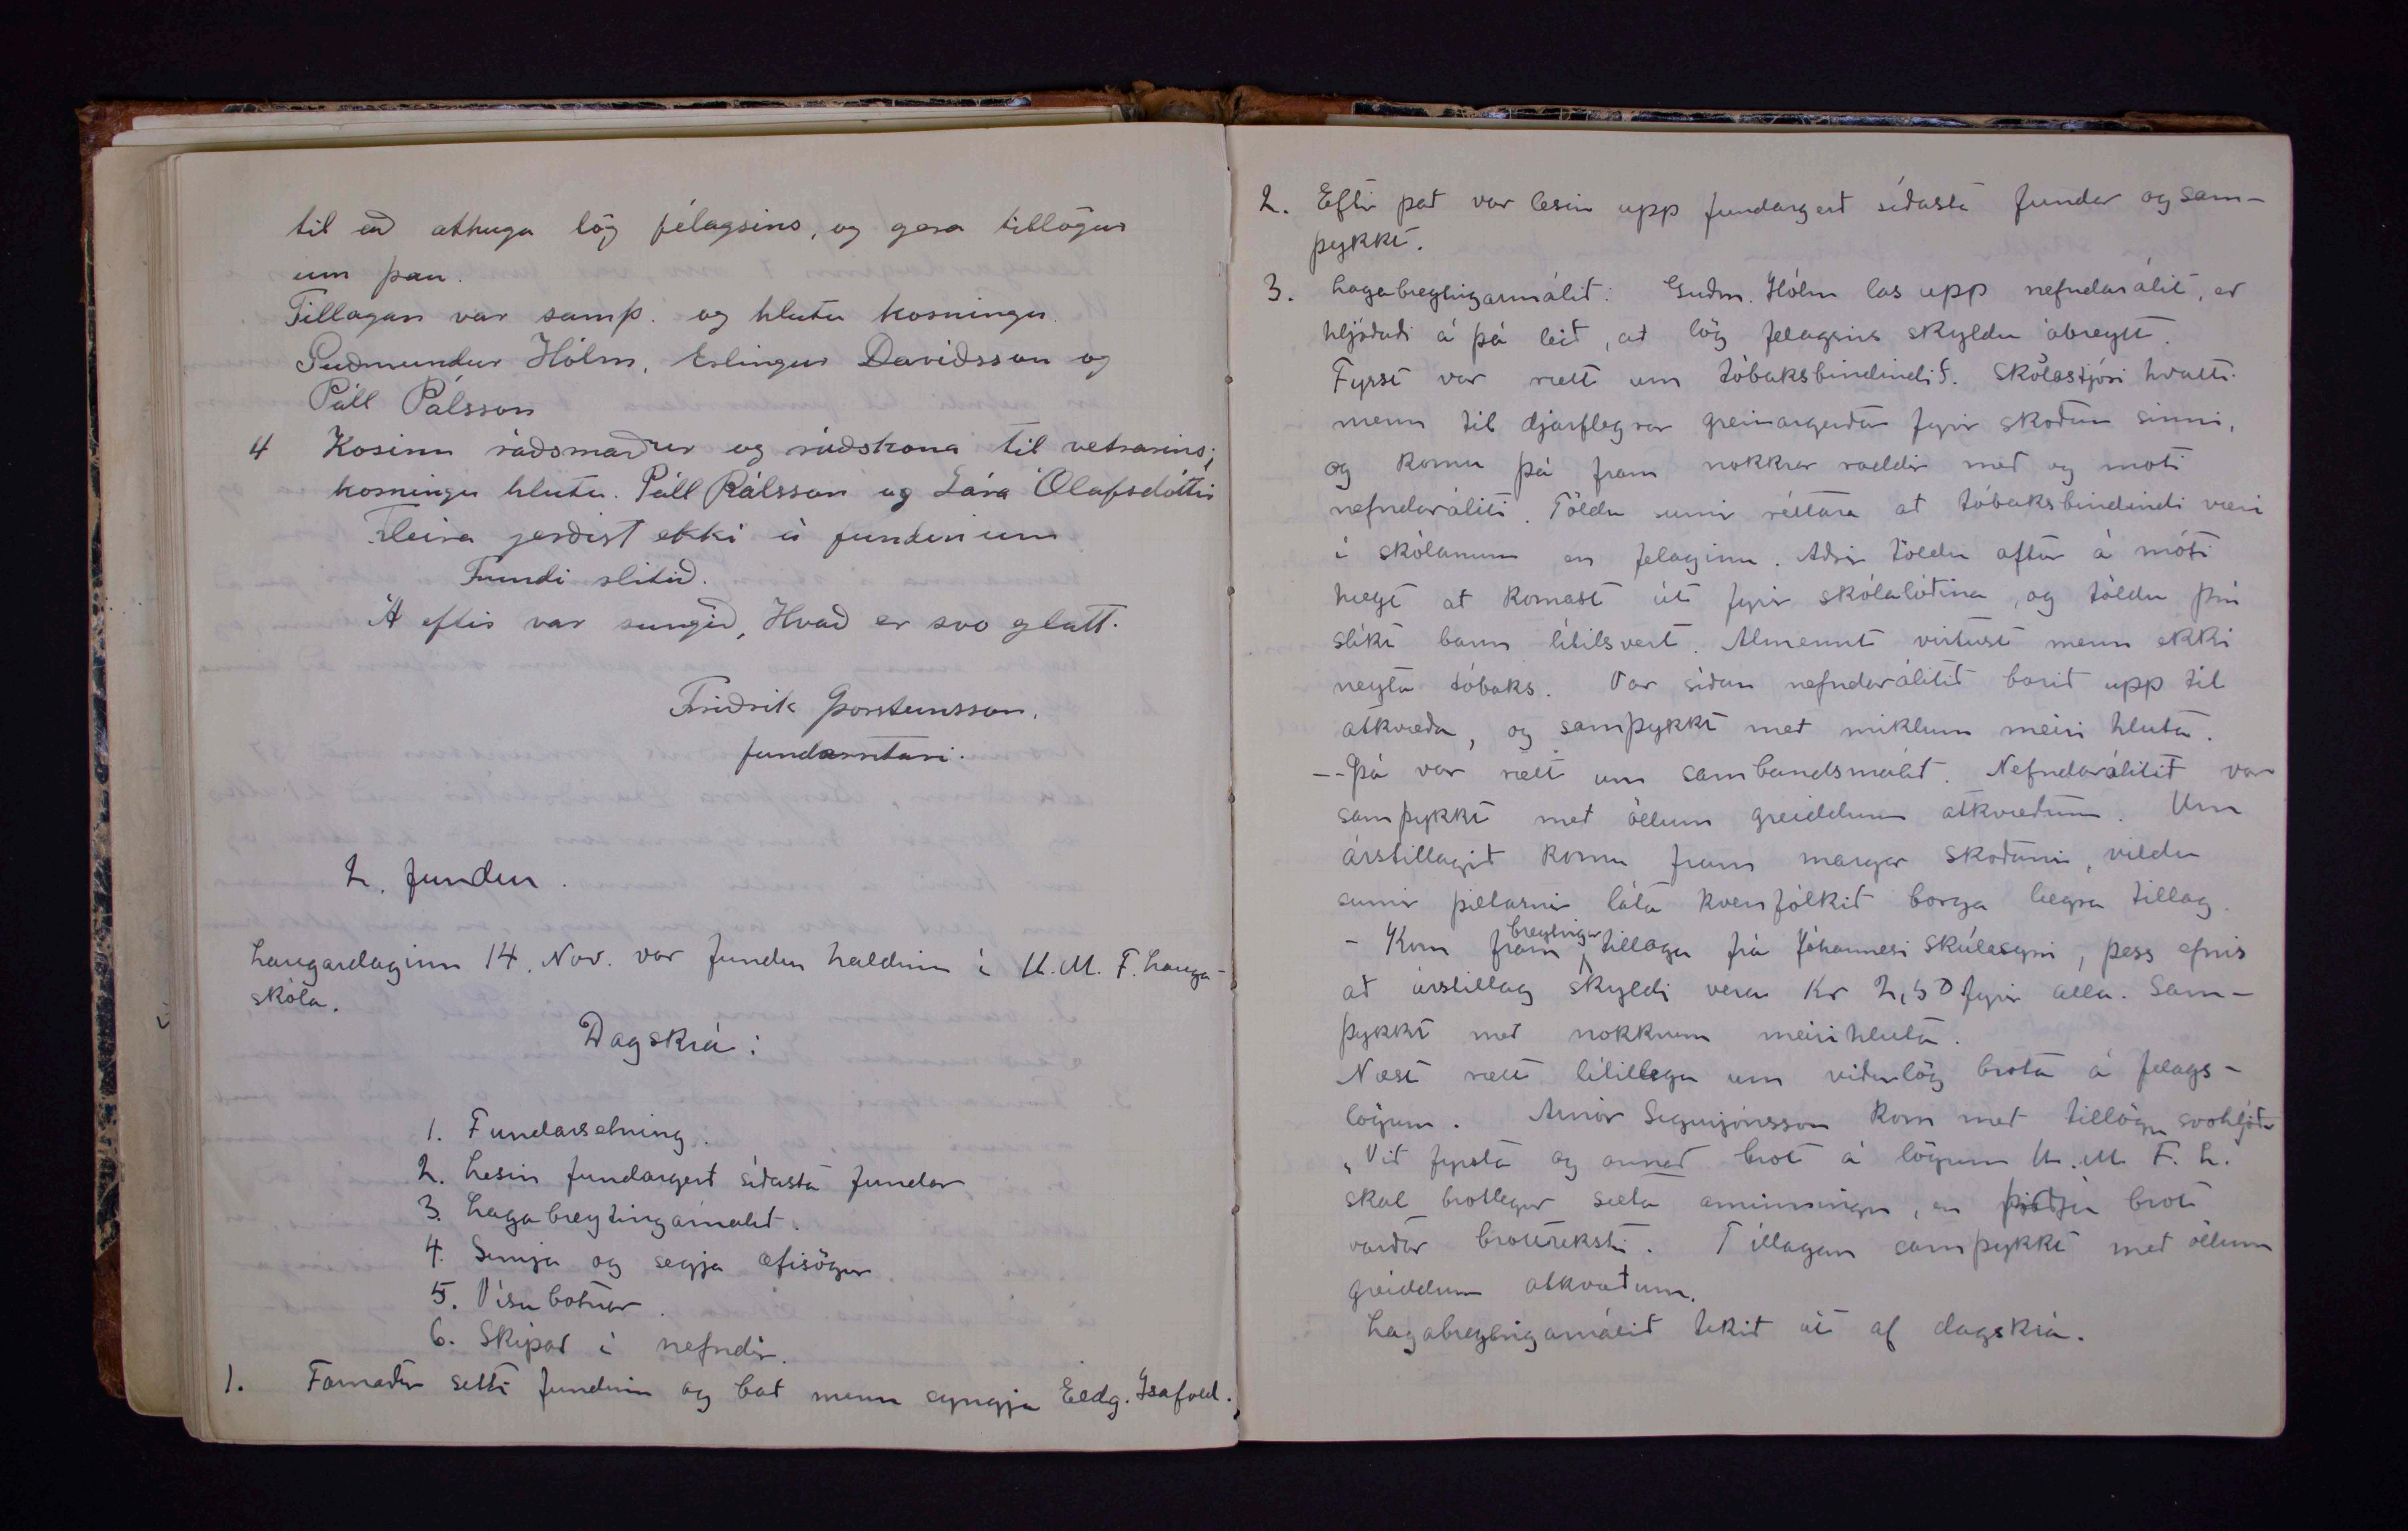 til að athuga lög félagsins, og gera tillögur
um þau.
Tillagan var samþ. og hlutu kosningu
Guðmundur Hólm, Erlingur Davíðsson og
Páll Pálsson
4 Kosinn ráðsmaður og ráðskona til vetrarins;
kosningu hlutu. Páll Pálsson og Lára Ólafsdóttir
Fleira gerðist ekki á fundinum
Fundi slitið.
Á eftir var sungið, Hvað er svo glatt.
Friðrik Þorsteinsson,
fundarritari.
2. fundur.
Laugardaginn 14. Nov. var fundur haldinn í U.M.F. Lauga-
skóla.
Dagskrá:
1. Fundarsetning.
2. Lesin fundargerð síðasta fundar
3. Lagabreytingamálið.
4. Semja og segja æfisögur
5. Vísubotnar.
6. Skipað í nefndir.
1. Formaður setti fundinn og bað menn syngja Eldg. Ísafold.
2. Eftir það var lesin upp fundargerð síðasta fundar og sam-
þykkt.
3. Lagabreytingarmálið: Guðm. Hólm las upp nefndarálit, er
hljóðaði á þá leið, að lög felagsins skyldu óbreytt.
Fyrst var rætt um tóbaksbindindis§. Skólastjóri hvatti
menn til djarflegrar greinargerðar fyrir skoðun sinni,
og komu þá fram nokkrar raddir með og móti
nefndaráliti. Töldu sumir réttara að tóbaksbindindi væri
í skólanum en felaginu. Aðrir töldu aftur á móti
hægt að komast út fyrir skólalóðina, og töldu því
slíkt bann lítilsvert. Almennt virtust menn ekki
neyta tóbaks. Var síðan nefndarálitið borið upp til
atkvæða, og samþykkt með miklum meiri hluta.
-- Þá var rætt um sambandsmálið. Nefndarálitið var
samþykkt með öllum greiddum atkvæðum. Um
árstillagið komu fram margar skoðanir, vildu
sumir piltarnir láta kvenfólkið borga lægra tillag.
- Kom fram breytingartillaga frá Jóhannesi Skúlasyni, þess efnis
að árstillag skyldi vera Kr 2,50 fyrir alla. Sam-
þykkt með nokkrum meirihluta.
Næst rætt lítillega um viðurlög brota á felags-
lögum. Arnór Sigurjónsson kom með tillögu svohljóð:
"Við fyrsta og annað brot á lögum U.M.F.L.
skal brotlegur sæta áminningu, en þriðja brot
varðar brottrekstri. Tillagan samþykkt með öllum
greiddum atkvæðum.
Lagabreytingamálið tekið út af dagskrá.